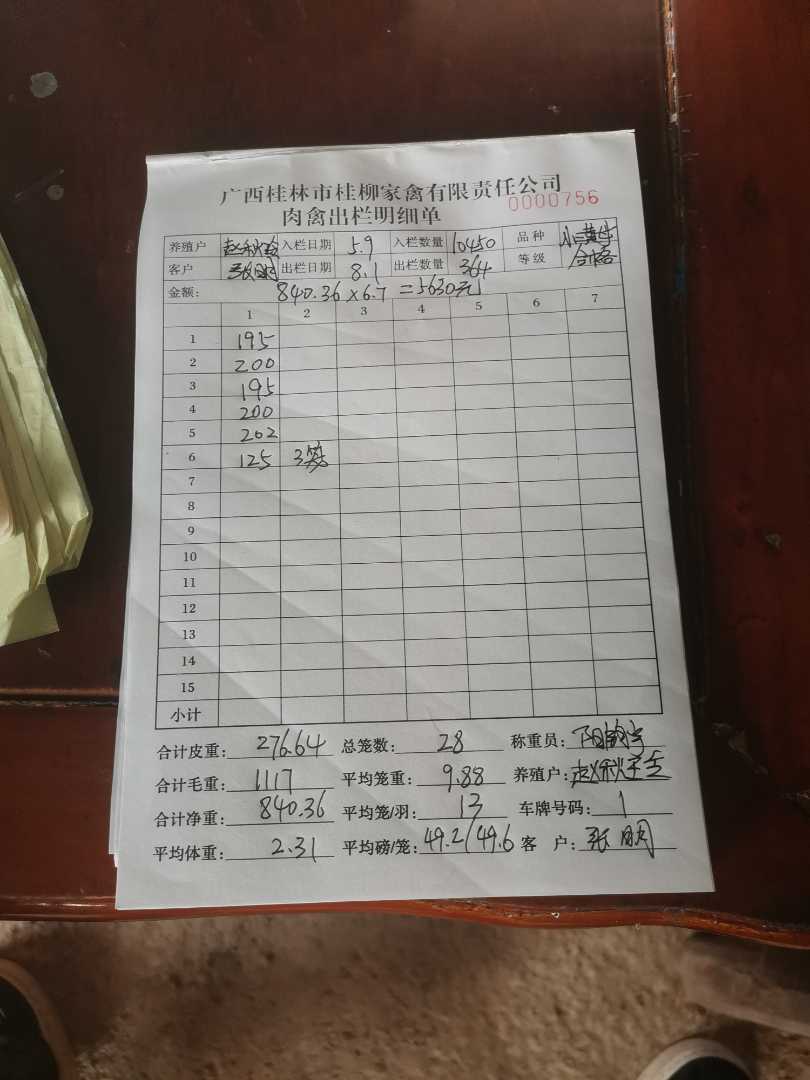 广西桂林市桂柳家禽有限责任公司
肉禽出栏明细单 0000756
养殖户 赵秋玲 入栏日期 5.9 入栏数量 10450 品种
客户 张明 出栏日期 8.1 出栏数量 364 等级 合格
金额: 840.36×6.7=5630元
1 2 3 4 5 6 7
1 195
2 200
3 195
4 200
5 202
6 125 3笼
7
8
9
10
11
12
13
14
15
小计
合计皮重: 276.64 总笼数: 28 称重员:
合计毛重: 1117 平均笼重: 9.88 养殖户: 赵秋玲
合计净重: 840.36 平均笼/羽: 13 车牌号码: 1
平均体重: 2.31 平均磅/笼: 49.2/49.6 客 户: 张明